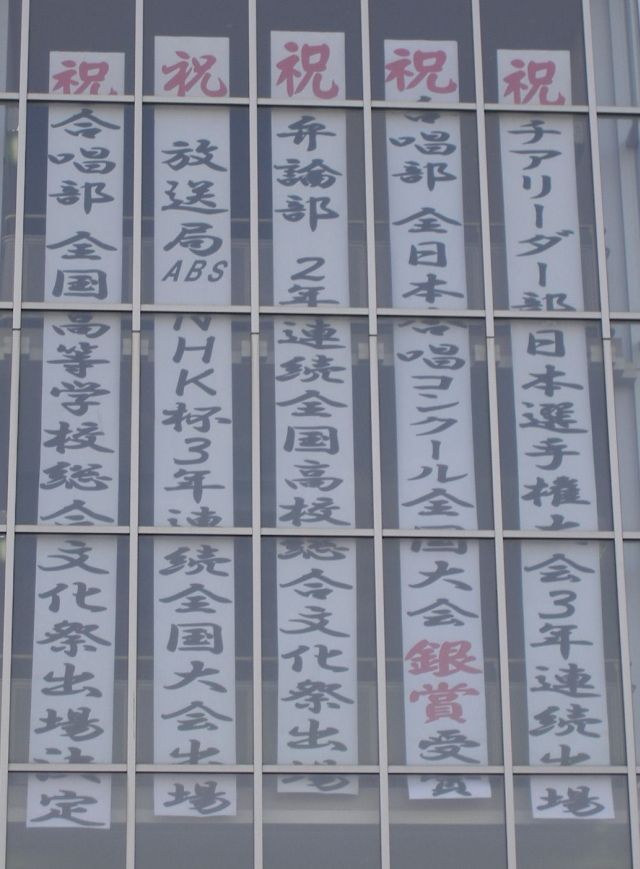 祝 チアリーダー部 日本選手権大会3年連続出場
祝 合唱部 全日本合唱コンクール全国大会 銀賞受賞
祝 弁論部 2年連続全国高校総合文化祭出場
祝 放送局ABS NHK杯3年連続全国大会出場
祝 合唱部 全国高等学校総合文化祭出場決定